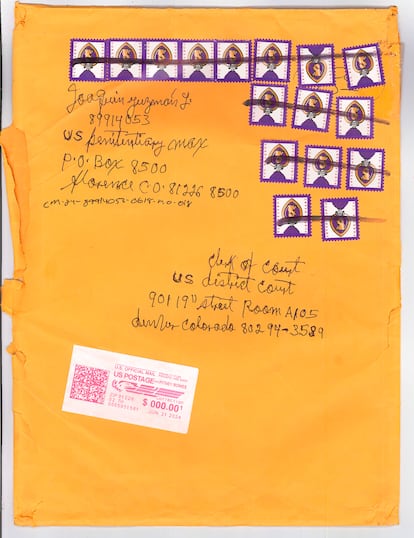 Joaquin Guzmán L.
89914053
US Penitentiary max
P.O. Box 8500
Florence C.O. 81226 8500
Clerk of Court
US District Court
901 19th Street Room A105
denver Colorado 80294-3589
U.S. OFFICIAL MAIL
US POSTAGE PITNEY BOWES
ZIP 81226
$ 000.00
JUN 21 2024